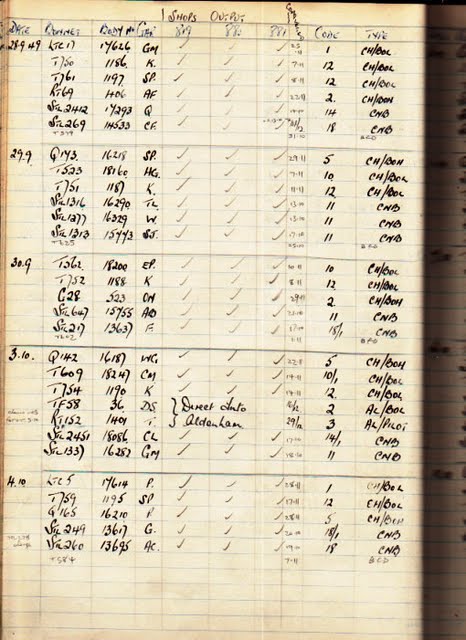 SHOPS OUTPUT
DATE RUNNES BODY No GAR. 879 880 881 CODE TYPE
28.9.49 LTC 17 17626 GM ✓ ✓ ✓ 1 CH/BOL
T750 1186 K. ✓ ✓ ✓ 7-11 12 CH/BOL
T761 1197 SP. ✓ ✓ ✓ 8-11 12 CH/BOL
RT69 1406 AF ✓ ✓ ✓ 22-11 2. CH/BOH
STL2412 17293 Q ✓ ✓ ✓ 14 CNB
STL269 14533 CF. ✓ ✓ 18 CNB
31.10 BCD
29.9 Q143 16218 SP. ✓ ✓ ✓ 29-11 5 CH/BOH
T523 18160 HG. ✓ ✓ ✓ 7-11 10 CH/BOL
T751 1187 K. ✓ ✓ ✓ 11-11 12 CH/BOL
STL1316 16290 TL. ✓ ✓ ✓ 13-10 11 CNB
STL1277 16329 W. ✓ ✓ ✓ 13-10 11 CNB
STL1313 15973 SJ. ✓ ✓ ✓ 17-10 11 CNB
BCD
30.9 T362 18200 EP. ✓ ✓ ✓ 10-11 10 CH/BOL
T752 1188 K ✓ ✓ ✓ 8-11 12 CH/BOL
G28 523 ON ✓ ✓ ✓ 29-11 2 CH/BOH
STL647 15755 AB ✓ ✓ ✓ 11 CNB
STL217 13637 F. ✓ ✓ ✓ 18/1 CNB
BCD
3.10. Q142 16187 WG ✓ ✓ ✓ 22-11 5 CH/BOH
T609 18247 CM ✓ ✓ ✓ 14-11 10/1 CH/BOL
T754 1190 K ✓ ✓ ✓ 14-11 12. CH/BOL
TF58 36 DS. } Direct Into 18/2 2 AL/BOL
RT152 1401 T. } Aldenham 29/2 3 AL/PILOT
STL2451 18086 CL ✓ ✓ ✓ 17-10 14/1 CNB
STL1337 16282 GM ✓ ✓ ✓ 18-10 11 CNB
4.10 LTC5 17614 P. ✓ ✓ ✓ 28-11 1 CH/BOL
T759 1195 SP. ✓ ✓ ✓ 17-11 12 CH/BOL
Q165 16210 P. ✓ ✓ ✓ 28-11 5 CH/BOH
STL249 13617 G. ✓ ✓ ✓ 20-10 18/1 CNB
STL260 13695 AC. ✓ ✓ ✓ 19-10 18 CNB
+584 7-11 BCD